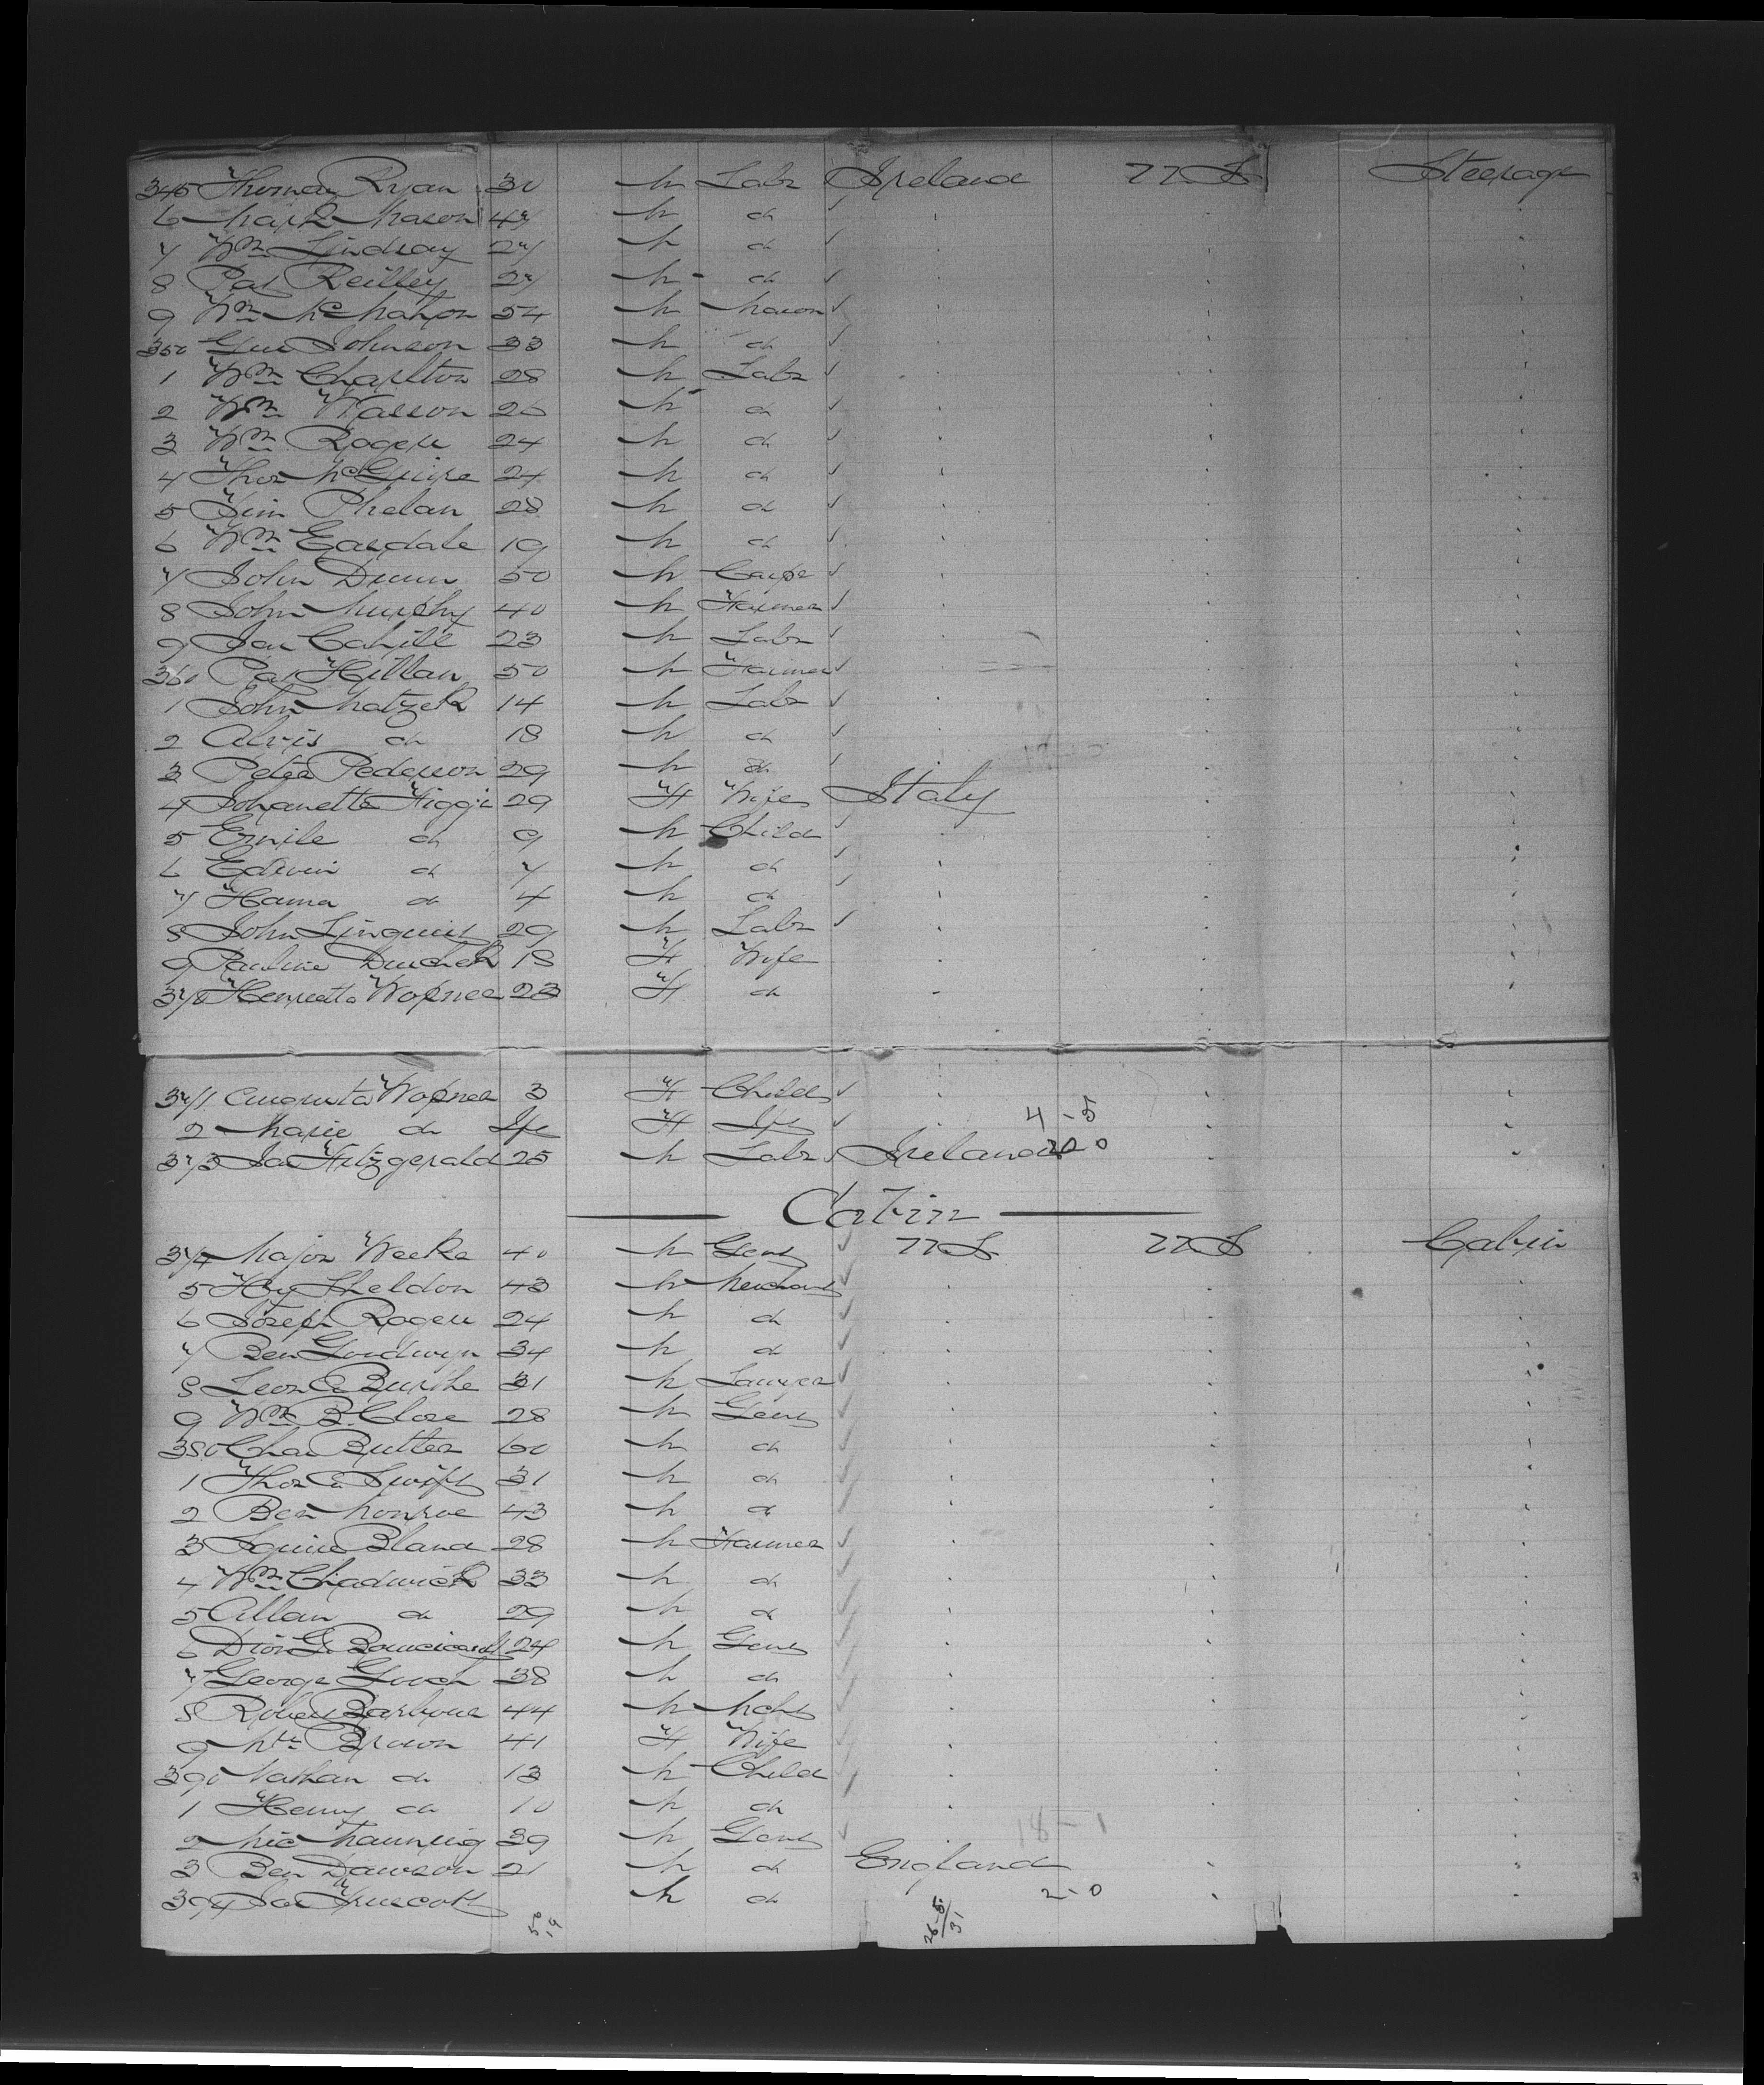 345 Thomas Ryan 30 M Labr Ireland U.S. Steerage
6 Mark Mason 47 M do
7 Wm Lindsay 27 M do
8 Pat Reilley 27 M do
9 Wm McMahon 54 M Mason
350 Gus Johnson 33 M do
1 Wm Charlton 28 M Labr
2 Wm Wasson 26 M do
3 Wm Rogers 24 M do
4 Thos McGuire 24 M do
5 Jim Phelan 28 M do
6 Wm Easdale 19 M do
7 John Dunn 50 M Carpr
8 John Murphy 40 M Farmer
9 Jas Cahill 23 M Labr
360 Pat Hillan 50 M Farmer
1 John Matzek 14 M Labr
2 Alvis do 18 M do
3 Peter Pederson 29 M do
4 Johanetta Figgi 29 F Wife Italy
5 Ernile do 9 M Child
6 Edwin do 7 M do
7 Hanna do 4 M do
8 John Linquist 29 M Labr
9 Pauline Duchek 18 F Wife
370 Henrietta Wopner 23 F do
371 Augusta Wopner 3 F Child
4-5
2 Marie do Inft F Inft
373 Jas Fitzgerald 25 M Labr Ireland 22 0
Cabin
374 Major Weeks 40 M Gent U.S. U.S. Cabin
5 Hy Sheldon 43 M Merchant
6 Joseph Rogers 24 M do
7 Ben Goodwyn 34 M do
8 Leon C Burthe 31 M Lawyer
9 Wm B. Close 28 M Gent
380 Chas Butler 60 M do
1 Thos C Swift 31 M do
2 Ben Monroe 43 M do
3 Squire Bland 28 M Farmer
4 Wm Chadwick 33 M do
5 Allan do 29 M do
6 Dion G. Boucicault 24 M Gent
7 George Gooch 38 M do
8 Robert Barbour 44 M Mcht
9 Mrs Brown 41 F Wife
390 Nathan do 13 M Child
1 Henry do 10 M do
18-1
2 Mic Manning 39 M Gent
3 Ben Dawson 21 M do England
394 Jas Truscott M do 2-0
26-5
31